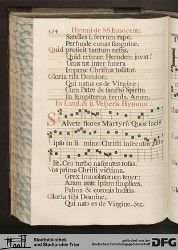 374 Hymni de SS. Innocent.
Satelles i, ferrum rape,
Perfunde cunas sanguine.
Quid proficit tantum nefas?
Quid crimen Herodem juvat?
Unus tot inter funera
Impune Christus tollitur.
Gloria tibi Domine,
Qui natus es de Virgine,
Cum Patre & sancto Spiritu
In sempiterna sæcula. Amen.
In Laud. & ij. Vesperis Hymnus.
SAlvete flores Martyrũ Quos lucis
ipso in li mine Christi insecutor
lit. Ceu turbo nascentes rosas.
Vos prima Christi victima,
Grex immolatorum tener:
Aram ante ipsam simplices,
Palma & coronis luditis.
Gloria tibi Domine,
Qui natus es de Virgine. &c.
Stadtbibliothek
und Stadtarchiv Trier
gefördert von der
Deutschen Forschungsgemeinschaft
DFG